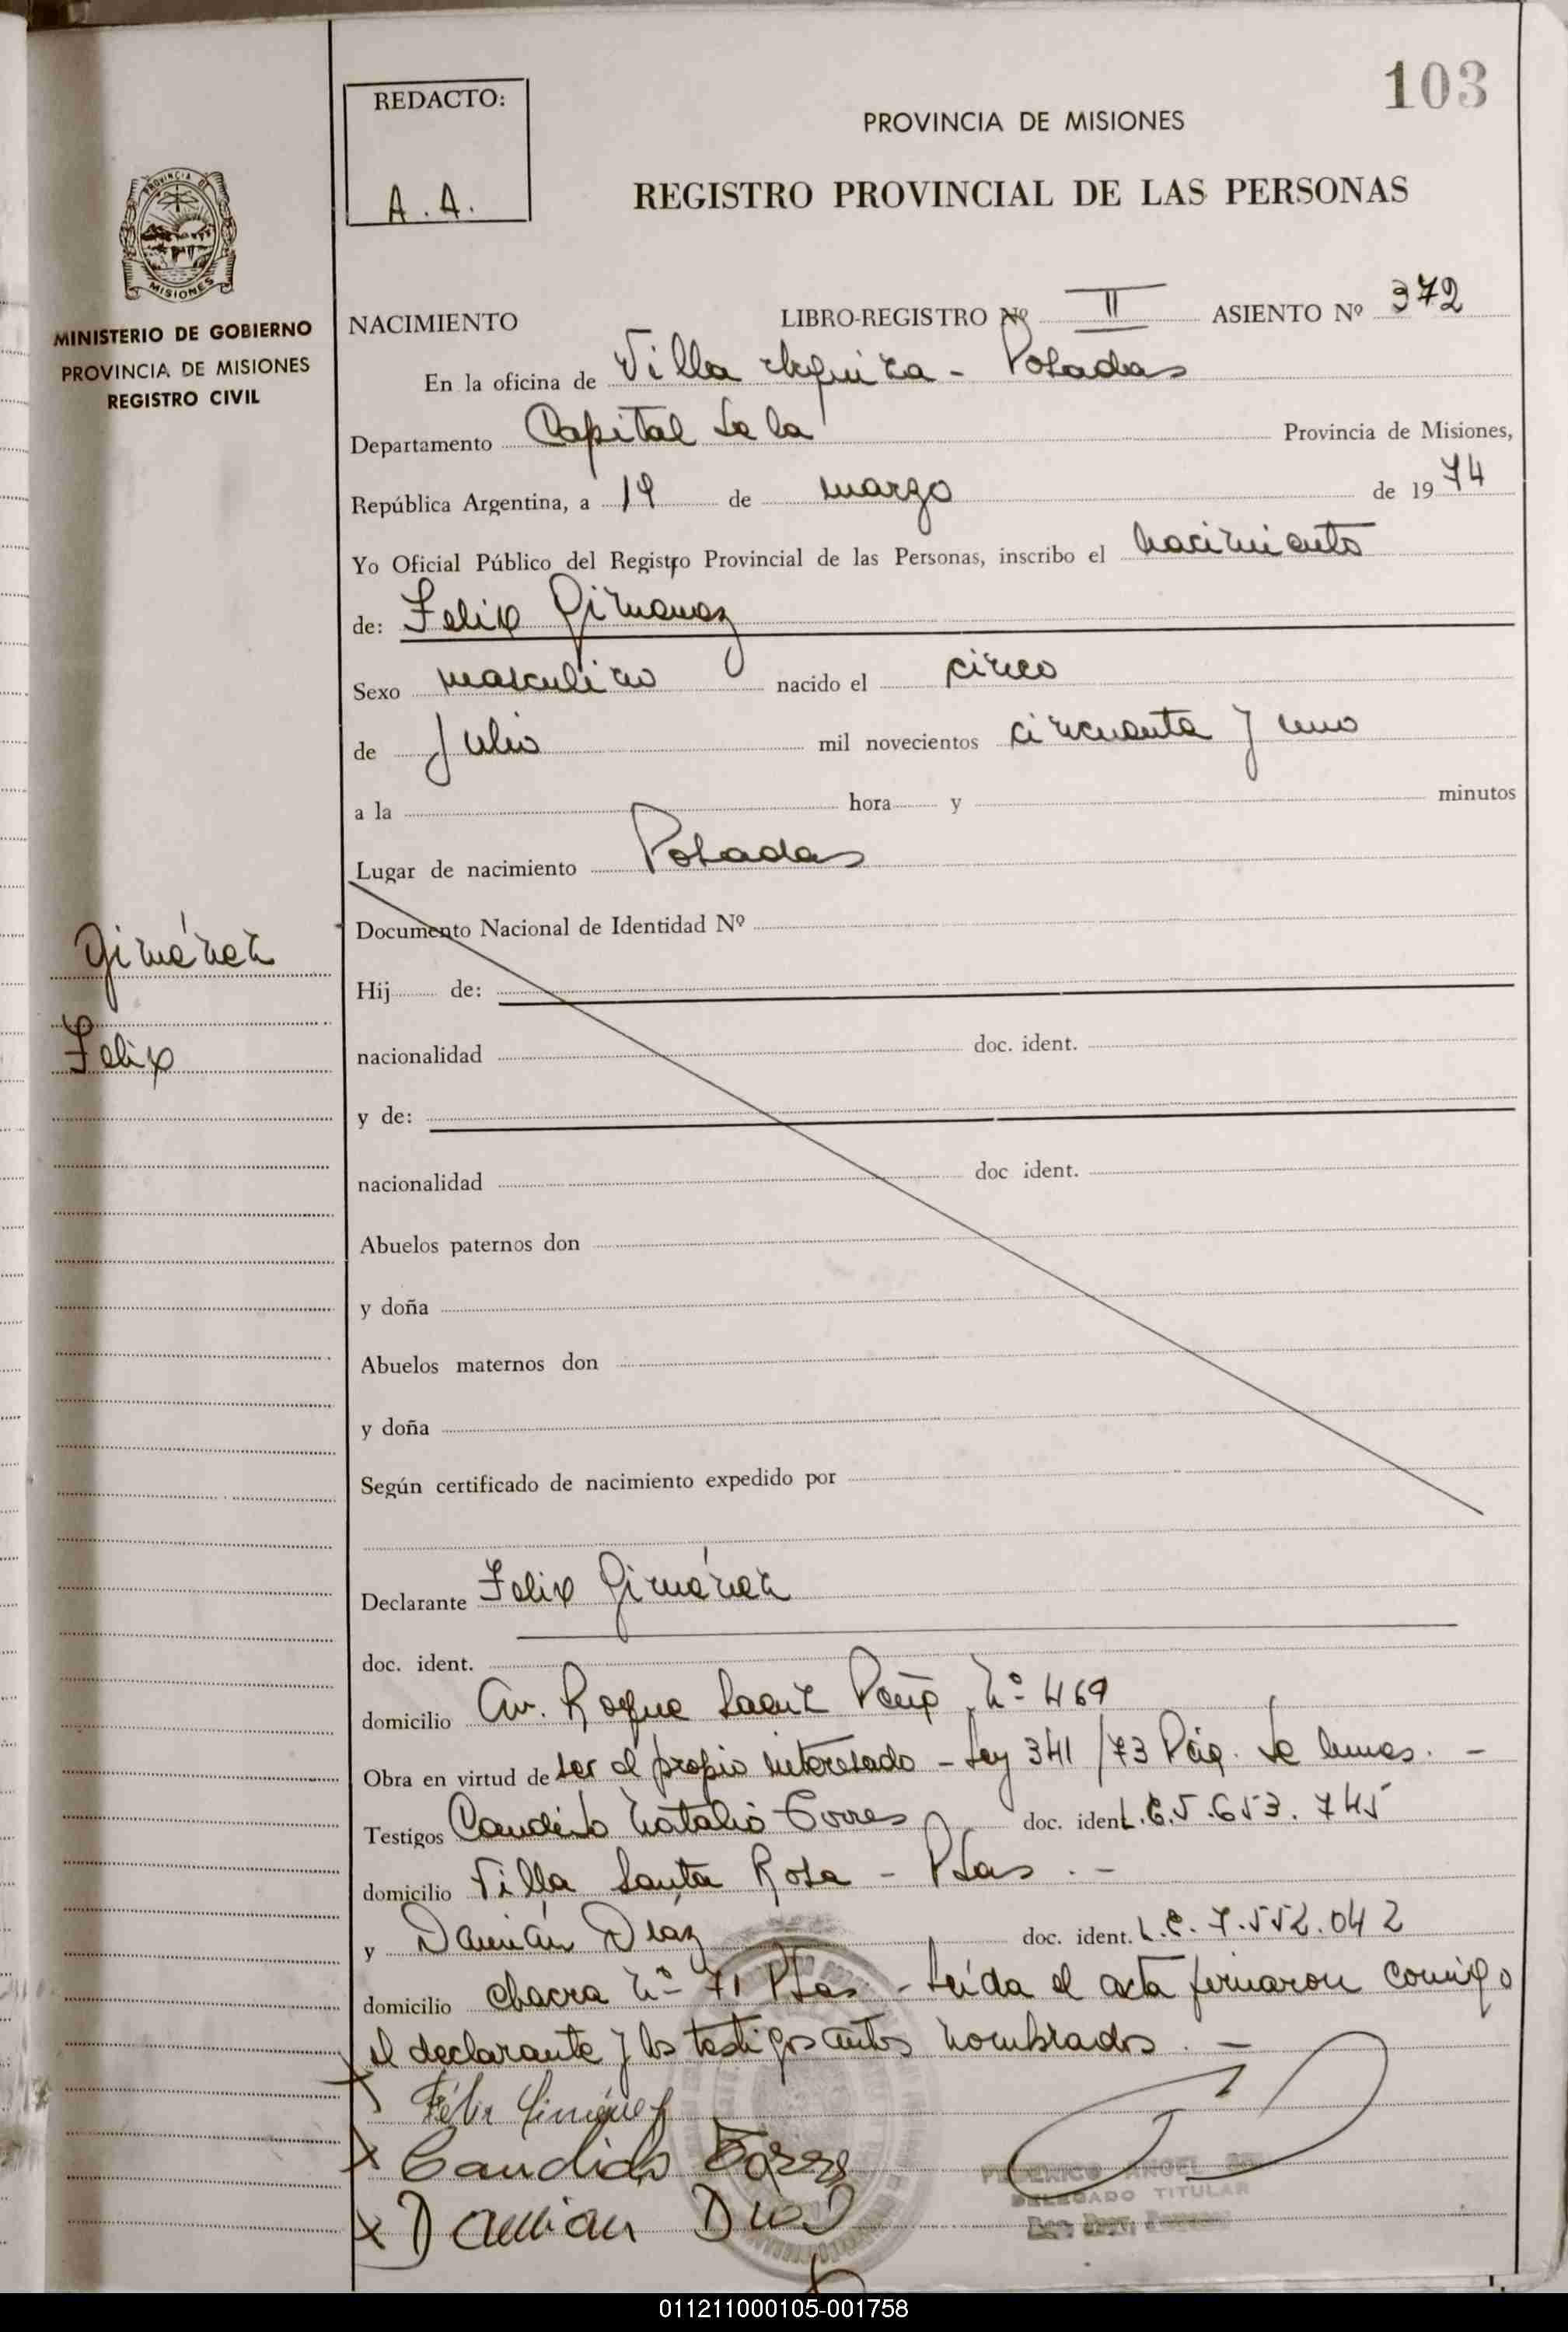 103
REDACTO:
A.A.
PROVINCIA DE MISIONES
REGISTRO PROVINCIAL DE LAS PERSONAS
PROVINCIA DE
MISIONES
MINISTERIO DE GOBIERNO
PROVINCIA DE MISIONES
REGISTRO CIVIL
NACIMIENTO LIBRO-REGISTRO Nº II ASIENTO Nº 372
En la oficina de Villa Urquiza - Posadas
Departamento Capital de la Provincia de Misiones,
República Argentina, a 19 de marzo de 1974
Yo Oficial Público del Registro Provincial de las Personas, inscribo el nacimiento
de: Felix Gimenez
Sexo masculino nacido el cinco
de Julio mil novecientos cincuenta y uno
a la hora y minutos
Lugar de nacimiento Posadas
Documento Nacional de Identidad Nº
Giménez
Felix
Hij de:
nacionalidad doc. ident.
y de:
nacionalidad doc ident.
Abuelos paternos don
y doña
Abuelos maternos don
y doña
Según certificado de nacimiento expedido por
Declarante Felix Giménez
doc. ident.
domicilio Av. Roque Saenz Peña Nº 469
Obra en virtud de ser el propio interesado - Ley 341/73 de
Testigos Candido Natalio Torres doc. ident L.E. 5.653.745
domicilio Villa Santa Rosa - Pdas. -
y Damián Díaz doc. ident. L.E. 7.552.042
domicilio chacra Nº 71 Pdas - Leída el acta firmaron conmigo
el declarante y los testigos antes nombrados. -
Félix Giménez
Candido Torres
Damian Diaz
ANGEL
DELEGADO TITULAR
011211000105-001758